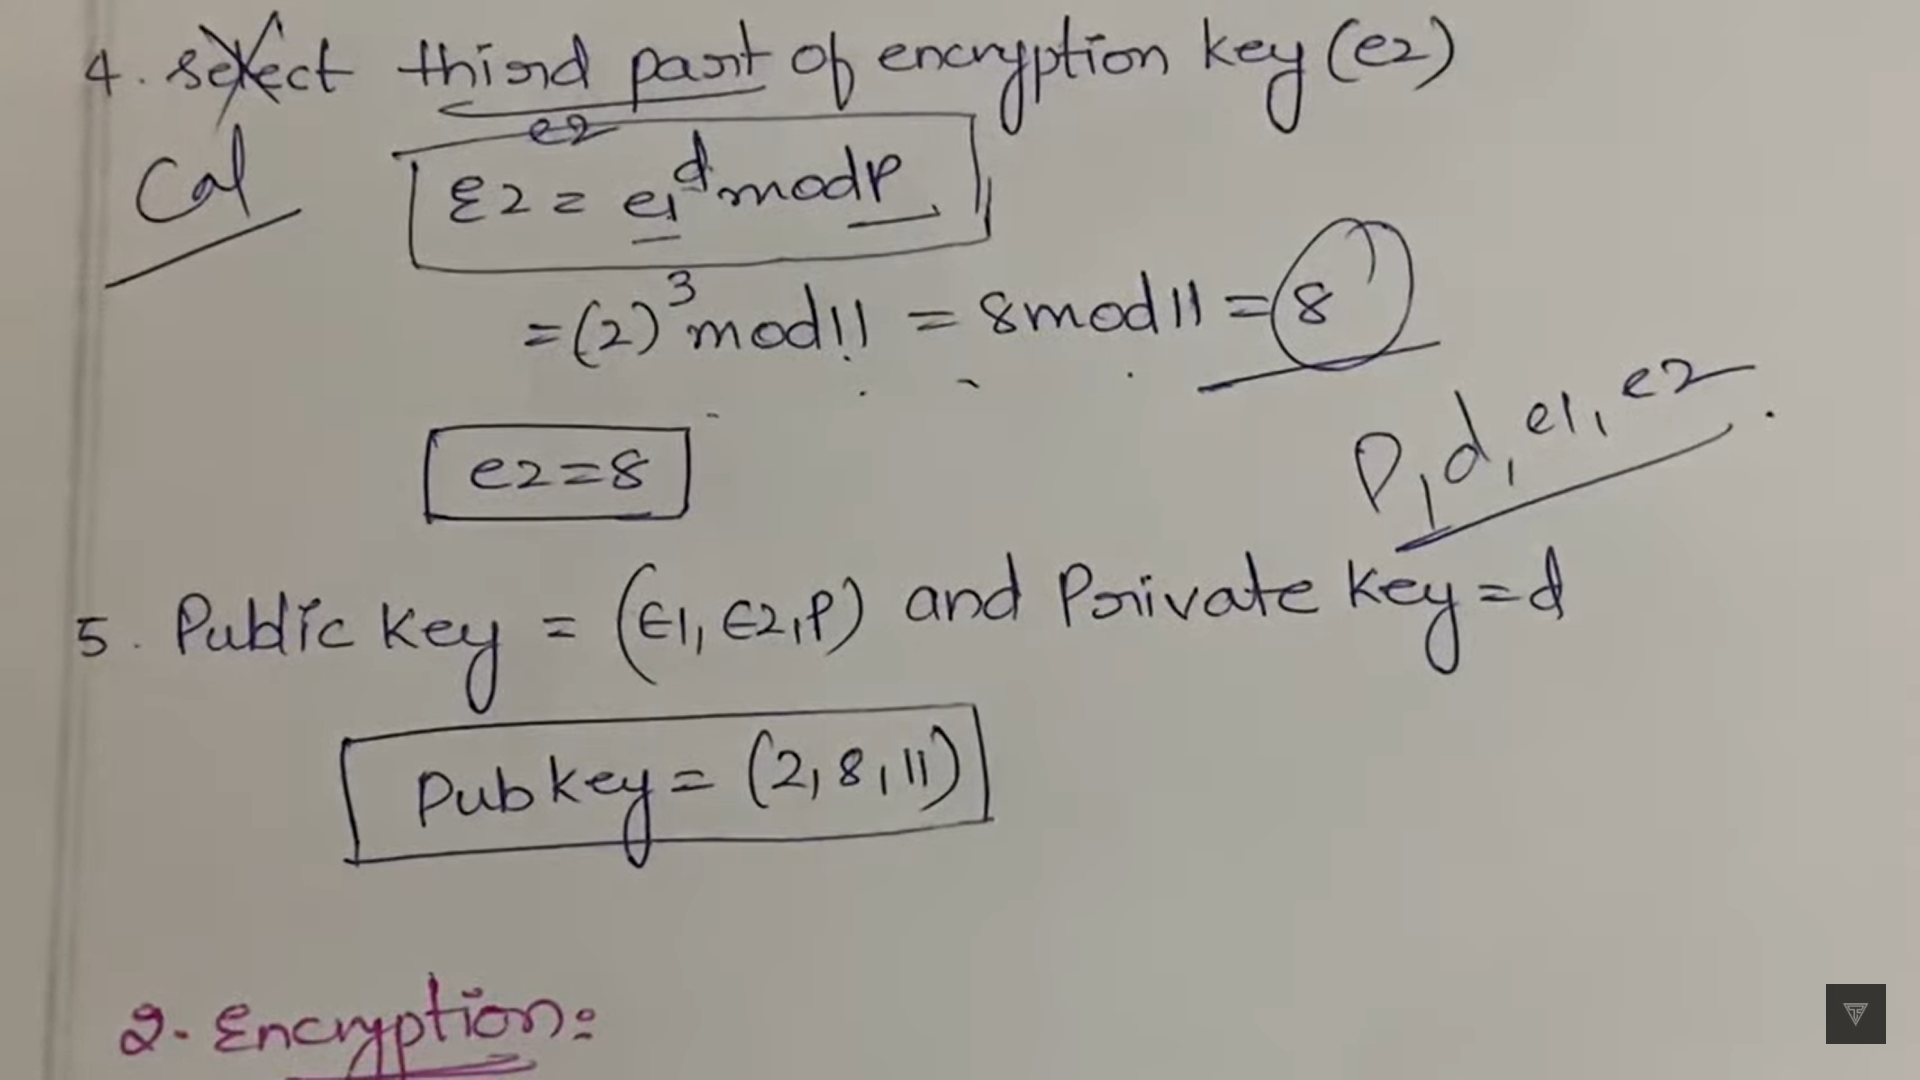 4. select third part of encryption key (e2)
Cal
e2
E2 = e1^d mod P
= (2)^3 mod 11 = 8 mod 11 = 8
P, d, e1, e2
e2 = 8
5. Public key = (E1, E2, P) and Private key = d
Pub key = (2, 8, 11)
2. Encryption: